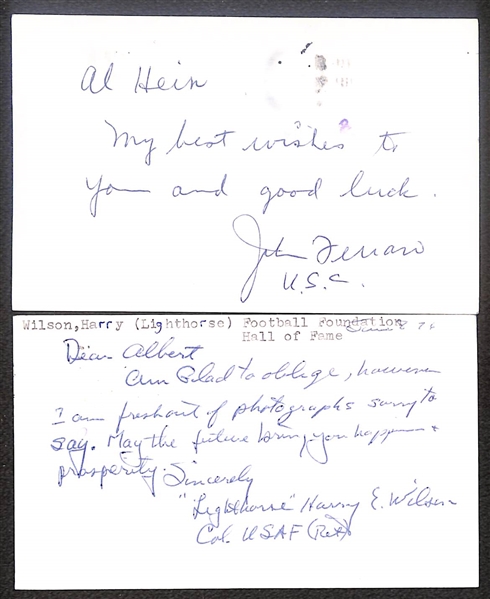 Al Hein
My best wishes to
you and good luck.
John Ferraro
U.S.C.
Wilson,Harry (Lighthorse) Football Foundation
Hall of Fame
Dear Albert
Am Glad to oblige, however
I am fresh out of photographs sorry to
say. May the future bring you happiness &
prosperity. Sincerely
"Lighthorse" Harry E. Wilson
Col. USAF (Ret)